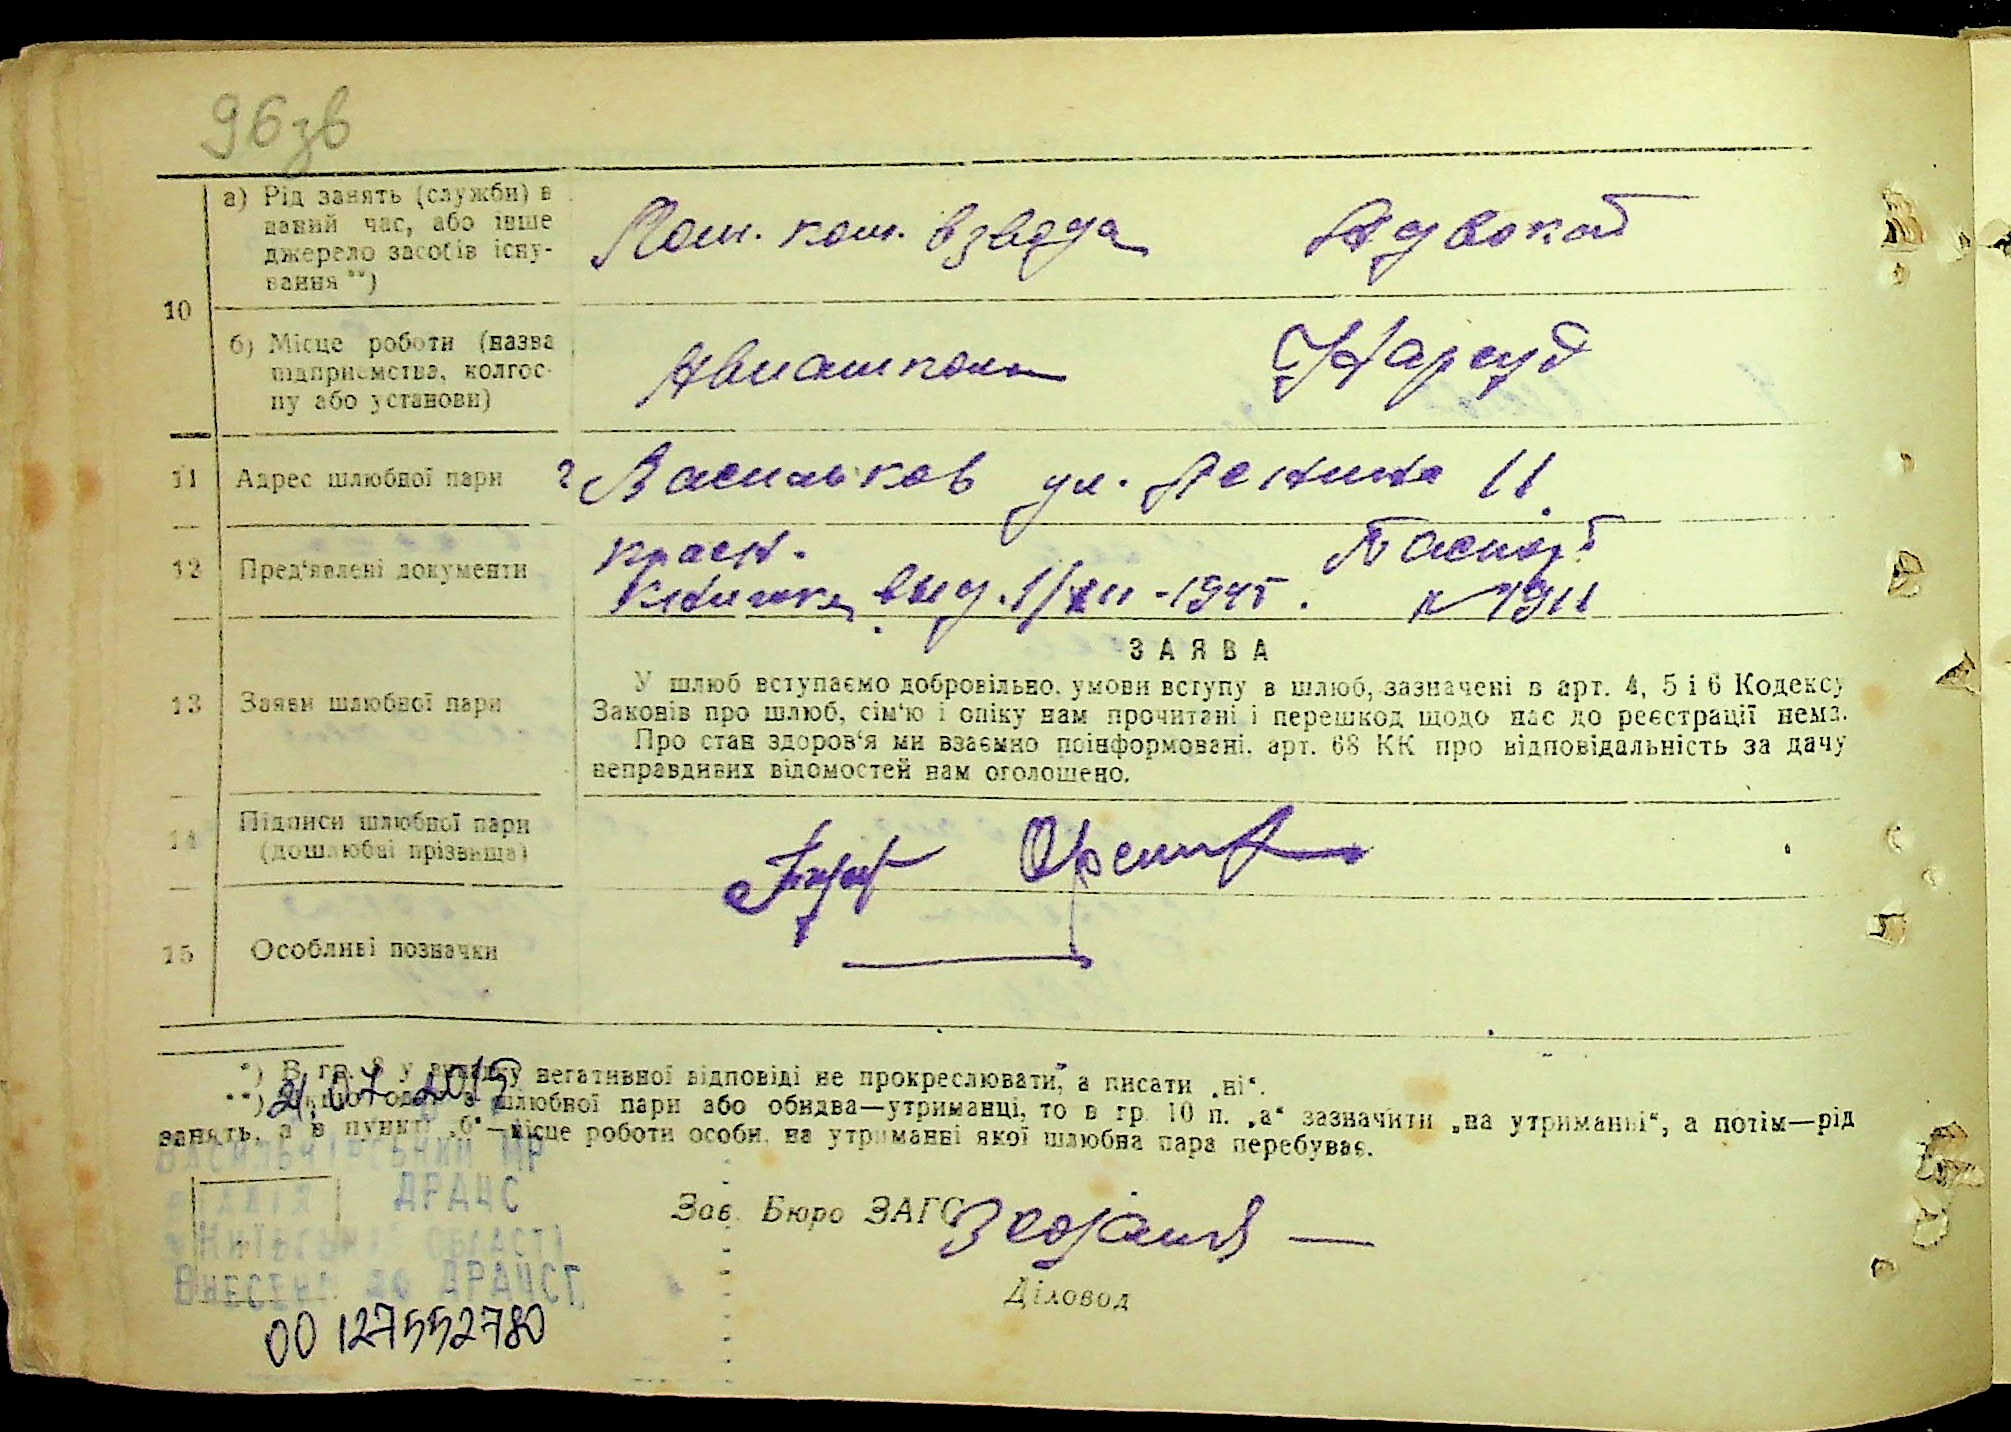 96зв
а) Рід занять (службн) в
даний час, або інше
джерело засобів існу-
вання **)
Пом. ком. взвода Адвокат
10
б) Місце роботи (назва
підприємства, колгос-
пу або установи)
Авиашкола Нарсуд
11 Адрес шлюбної пари г Васильков ул. Ленина 11
12 Пред'явлені документи
красн. Паспорт
книжка выд. 1/XII-1945. № 1911
ЗАЯВА
13 Заяви шлюбної пари
У шлюб вступаємо добровільно, умови вступу в шлюб, зазначені в арт. 4, 5 і 6 Кодексу
Законів про шлюб, сім'ю і опіку нам прочитані і перешкод щодо нас до реєстрації нема.
Про стан здоров'я ми взаємно поінформовані, арт. 68 КК про відповідальність за дачу
неправдивих відомостей нам оголошено.
14 Підписи шлюбної пари
(дошлюбні прізвища)
15 Особливі позначки
*) В гр. у негативної відповіді не прокреслювати, а писати „ні“.
21.07.2015
**) шлюбної пари або обидва—утриманці, то в гр. 10 п. „а“ зазначити „на утриманні“, а потім—рід
занять, а в пункті „б“—місце роботи особи, на утриманні якої шлюбна пара перебуває.
Васильківський МР
відділ ДРАЦС
Київської області
Внесено до ДРАЦСГ
Зав. Бюро ЗАГС
Діловод
00127552780